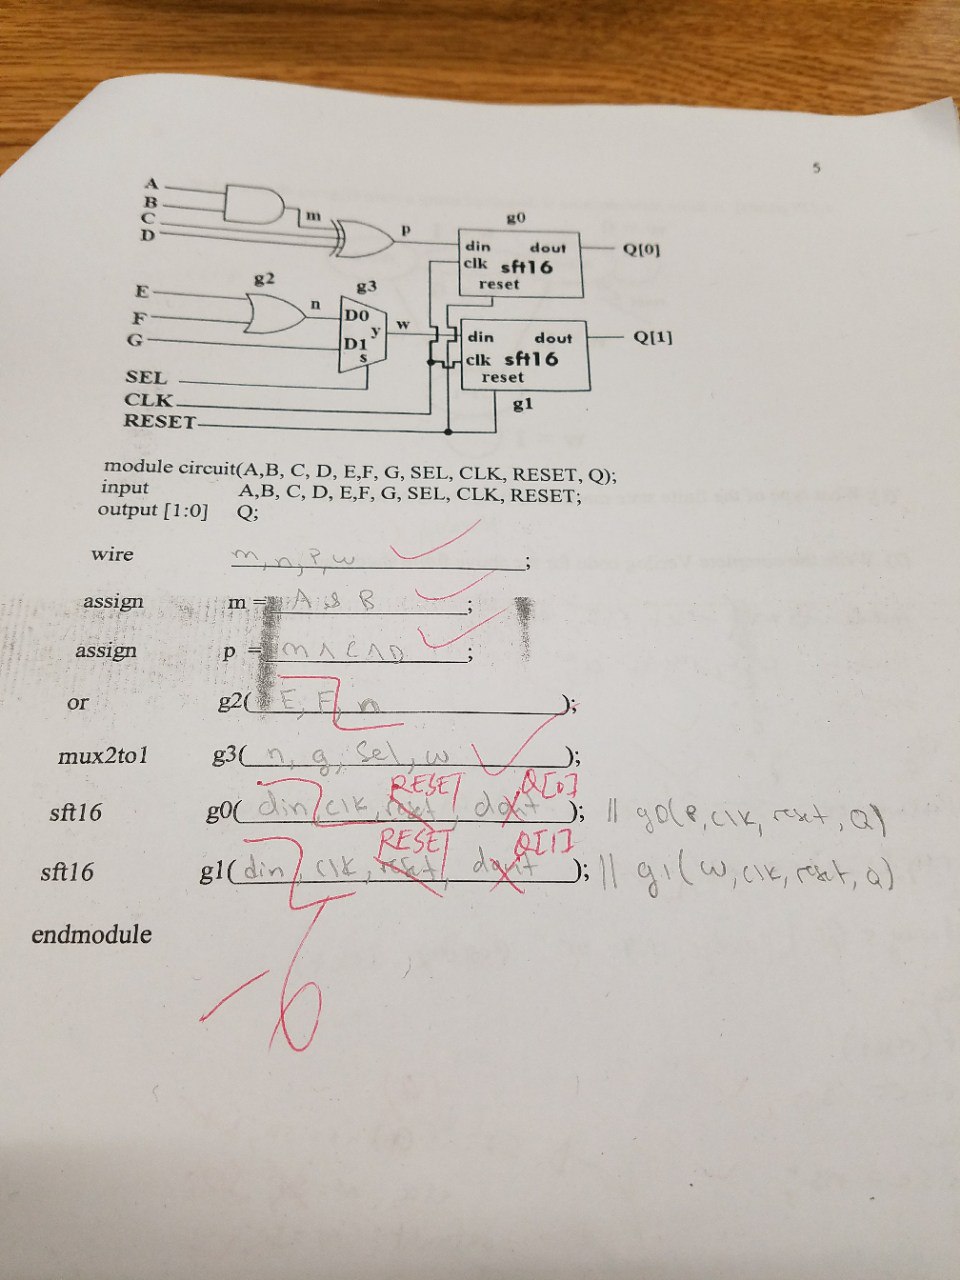 5
A
B
C
D
m
p
g0
din dout
clk sft16
reset
Q[0]
E
F
G
g2
n
g3
D0
y
D1
s
w
din dout
clk sft16
reset
Q[1]
g1
SEL
CLK
RESET
module circuit(A,B, C, D, E,F, G, SEL, CLK, RESET, Q);
input A,B, C, D, E,F, G, SEL, CLK, RESET;
output [1:0] Q;
wire m, n, P, w ;
assign m = A & B ;
assign p = m ^ C ^ D ;
or g2( E, F, n );
mux2to1 g3( n, g, Sel, w );
RESET Q[0]
sft16 g0( din, clk, reset, dout ); // g0(P, clk, reset, Q)
RESET Q[1]
sft16 g1( din, clk, reset, dout ); // g1(w, clk, reset, Q)
endmodule
-6